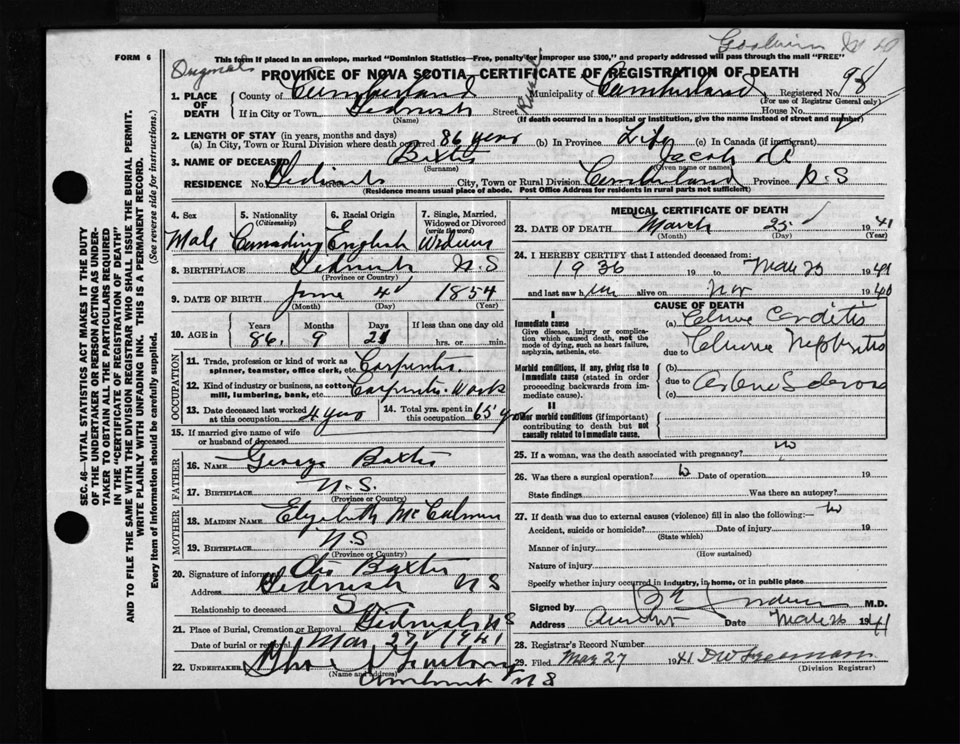 FORM 6
This form if placed in an envelope, marked "Dominion Statistics—Free, penalty for improper use $300," and property addressed will pass through the mail "FREE"
PROVINCE OF NOVA SCOTIA—CERTIFICATE OF REGISTRATION OF DEATH
1. PLACE OF DEATH
County of Cumberland Municipality of Cumberland Registered No. 98
(For use of Registrar General only)
If in City or Town Street House No.
(Name) (If death occurred in a hospital or institution, give the name instead of street and number)
2. LENGTH OF STAY (in years, months and days)
(a) In City, Town or Rural Division where death occurred 86 years (b) In Province Life (c) In Canada (if immigrant)
3. NAME OF DECEASED Baxter Jacob A
(Surname) (Given name or names)
RESIDENCE No. City, Town or Rural Division Cumberland Province N.S
(Residence means usual place of abode. Post Office Address for residents in rural parts not sufficient)
4. Sex
Male
5. Nationality
(Citizenship)
Canadian
6. Racial Origin
English
7. Single, Married, Widowed or Divorced
(write the word)
Widower
8. BIRTHPLACE N.S
(Province or Country)
9. DATE OF BIRTH June 4 1854
(Month) (Day) (Year)
10. AGE in
Years Months Days If less than one day old
86 9 21 hrs. or min.
OCCUPATION
11. Trade, profession or kind of work as spinner, teamster, office clerk, etc. Carpenter
12. Kind of industry or business, as cotton mill, lumbering, bank, etc. Carpenter Work
13. Date deceased last worked at this occupation 4 yrs
14. Total yrs. spent in this occupation
15. If married give name of wife or husband of deceased
FATHER
16. NAME George Baxter
17. BIRTHPLACE N.S.
(Province or Country)
MOTHER
18. MAIDEN NAME Elizabeth
19. BIRTHPLACE N.S
(Province or Country)
20. Signature of informant Baxter
Address N S
Relationship to deceased Son
21. Place of Burial, Cremation or Removal N S
Date of burial or removal Mar 27 1941
22. UNDERTAKER
(Name and address)
Amherst N S
MEDICAL CERTIFICATE OF DEATH
23. DATE OF DEATH March 25 1941
(Month) (Day) (Year)
24. I HEREBY CERTIFY that I attended deceased from:
1936 19 to Mar 25 1941
and last saw him alive on Nov 1940
CAUSE OF DEATH
I
Immediate cause
Give disease, injury or complication which caused death, not the mode of dying, such as heart failure, asphyxia, asthenia, etc.
(a) Carditis
due to Chronic Nephritis
Morbid conditions, if any, giving rise to immediate cause (stated in order proceeding backwards from immediate cause).
(b)
due to
(c)
II
Other morbid conditions (if important) contributing to death but not causally related to immediate cause.
25. If a woman, was the death associated with pregnancy?
26. Was there a surgical operation? Date of operation 19
State findings Was there an autopsy?
27. If death was due to external causes (violence) fill in also the following:—
Accident, suicide or homicide? Date of injury 19
(State which)
Manner of injury
(How sustained)
Nature of injury
Specify whether injury occurred in industry, in home, or in public place
Signed by M.D.
Address Amherst Date Mar 26 1941
28. Registrar's Record Number
29. Filed Mar 27 1941 D W Freeman
(Division Registrar)
SEC. 46—VITAL STATISTICS ACT MAKES IT THE DUTY OF THE UNDERTAKER OR PERSON ACTING AS UNDERTAKER TO OBTAIN ALL THE PARTICULARS REQUIRED IN THE "CERTIFICATE OF DEATH"
AND TO FILE THE SAME WITH THE DIVISION REGISTRAR WHO SHALL ISSUE THE BURIAL PERMIT.
WRITE PLAINLY WITH UNFADING INK. THIS IS A PERMANENT RECORD.
Every item of information should be carefully supplied. (See reverse side for instructions.)